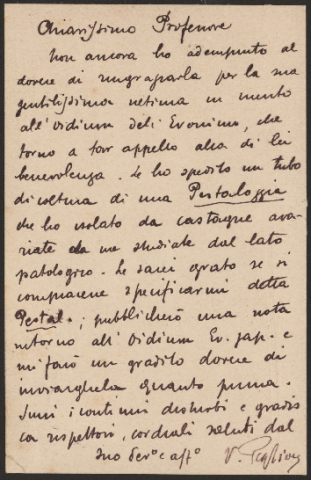 Chiarissimo Professore
Non ancora ho adempiuto al
dovere di ringraziarla per la sua
gentilissima lettera in merito
all'Oidium dell'Evonimo, che
torno a far appello alla di lei
benevolenza. Le ho spedito un tubo
di coltura di una Pestalozzia
che ho isolato da castagne ava-
riate da me studiate dal lato
patologico. Le sarei grato se si
compiacesse specificarmi detta
Pestal.; pubblicherò una nota
intorno all'Oidium Ev. jap. e
mi farò un gradito dovere di
inviargliela quanto prima.
Scusi i continui disturbi e gradis
ca rispettosi, cordiali saluti dal
suo dev° e aff°
V. Peglion